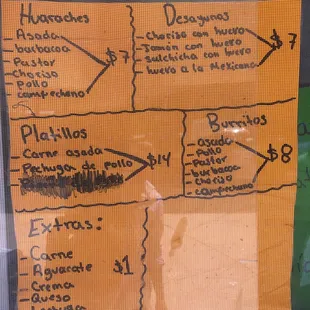 Huaraches
- Asada
- barbacoa
- Pastor
- Choriso
- Pollo
- campechano
$7
Desayunos
- Choriso con huevo
- Jamón con huevo
- sulchicha con huevo
- huevo a la Mexicana
$7
Platillos
- Carne asada
- Pechuga de pollo
$14
Burritos
- asada
- Pollo
- Pastor
- burbacoa
- choriso
- campechano
$8
Extras:
- Carne
- Aguacate
- Crema
- Queso
$1